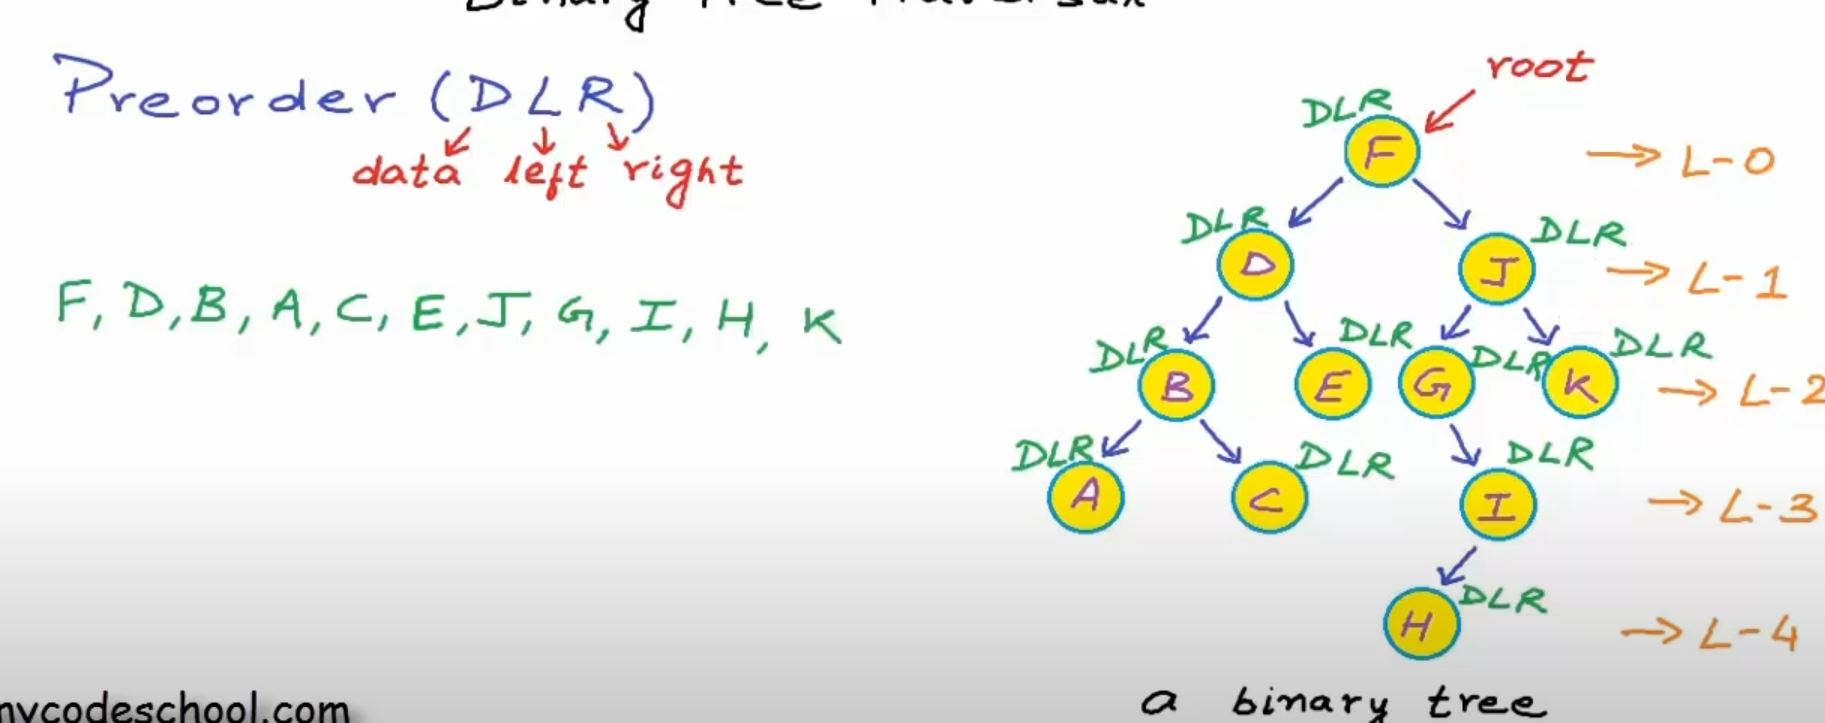 Binary Tree Traversal
Preorder (DLR)
data left right
F, D, B, A, C, E, J, G, I, H, K
root
DLR
F
→ L-0
DLR
D
DLR
J
→ L-1
DLR
B
DLR
E
DLR
G
DLR
K
→ L-2
DLR
A
DLR
C
DLR
I
→ L-3
DLR
H
→ L-4
a binary tree
mycodeschool.com